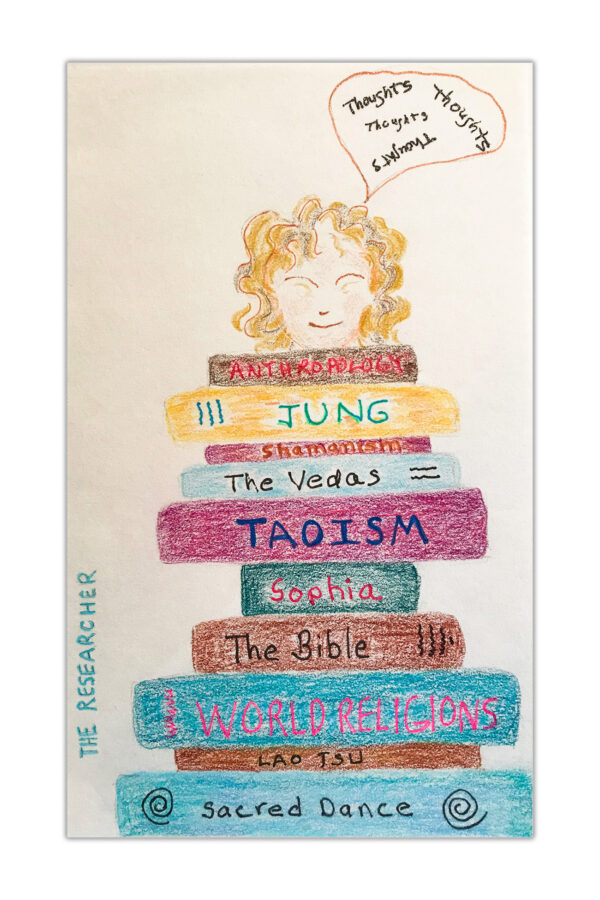 Thoughts
Thoughts
Thoughts
Thoughts
ANTHROPOLOGY
JUNG
Shamanism
The Vedas
TAOISM
Sophia
The Bible
WORLD RELIGIONS
LAO TSU
Sacred Dance
THE RESEARCHER